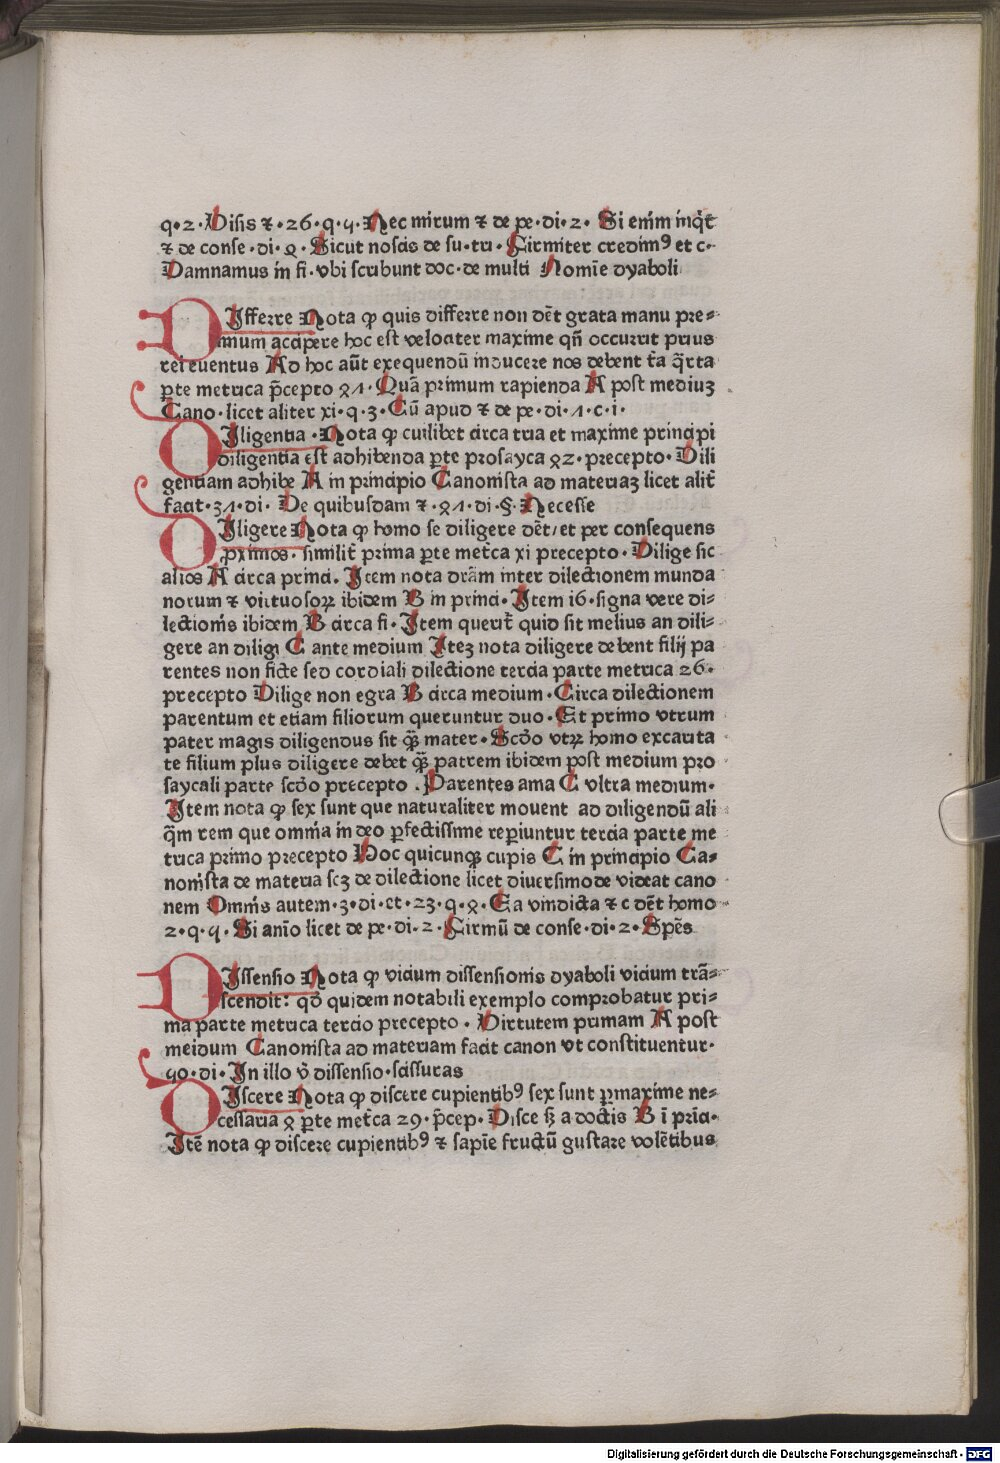 q·2·Visis ⁊·26·q·4·Nec mirum ⁊ de pe·di·2·Si enim inq̃t
⁊ de conse·di·8·Sicut noscis de su·tri·Firmiter credimꝰ et c·
Damnamus in fi·vbi scribunt doc·de multi Nomīe dyaboli
DIfferre Nota ꝙ quis differre non dēt grata manu pre⸗
mium accipere hoc est velociter maxime qñ occurrit prius
rei euentus Ad hoc aūt exequendū inducere nos debent t̃a q̃rta
ꝑte metrica p̄cepto 81·Quā primum rapienda A post mediuꝫ
Cano·licet aliter xi·q·3·Cū apud ⁊ de pe·di·1·c·i·
DIligentia·Nota ꝙ cuilibet circa tria et maxime principi
diligentia est adhibenda ꝑte prosayca 82·precepto·Dili
gentiam adhibe A in principio Canonista ad materiaꝫ licet alit̃
facit·31·di·De quibusdam ⁊·81·di·§·Necesse
DIligere Nota ꝙ homo se diligere dēt/et per consequens
ꝓximos·similit̃ prima ꝑte met̃ca xi precepto·Dilige sic
alios A circa princi.Item nota drām inter dilectionem munda
norum ⁊ virtuosoꝝ ibidem B in princi·Item 16·signa vere di⸗
lectionis ibidem B circa fi·Item querit̃ quid sit melius an dili⸗
gere an diligi C ante medium Iteꝫ nota diligere debent filij pa
rentes non ficte sed cordiali dilectione tercia parte metrica 26·
precepto Dilige non egra B circa medium·Circa dilectionem
parentum et etiam filiorum queruntur duo·Et primo vtrum
pater magis diligendus sit q̃ꝫ mater·Scd̄o vtꝝ homo excarita
te filium plus diligere debet q̃ꝫ patrem ibidem post medium pro
saycali parte scd̄o precepto.Parentes ama C vltra medium·
Item nota ꝙ sex sunt que naturaliter mouent ad diligendū ali
q̃m rem que omnia in deo ꝑfectissime reperiuntur tercia parte me
trica primo precepto Hoc quicunqꝫ cupis C in principio Ca⸗
nonista de materia scꝫ de dilectione licet diuersimode videat cano
nem Omnis autem·3·di·et·23·q·8·Ea vindicta ⁊ c dēt homo
2·q·4·Si anīo licet de pe·di·2·Firmū de conse·di·2·Spēs
DIssensio Nota ꝙ vicium dissensionis dyaboli vicium trā⸗
scendit: qd̄ quidem notabili exemplo comprobatur pri⸗
ma parte metrica tercio precepto·Virtutem primam A post
meidum Canonista ad materiam facit canon vt constituentur·
40·di·In illo v̄ dissensio·scissuras
DIscere Nota ꝙ discere cupientibꝰ sex sunt ꝑmaxime ne⸗
cessaria 8 ꝑte met̃ca 29·p̄cep·Disce sꝫ a doctis B ī prīci·
Itē nota ꝙ discere cupientibꝰ ⁊ sapīe fructū gustare volētibus
Digitalisierung gefördert durch die Deutsche Forschungsgemeinschaft - DFG